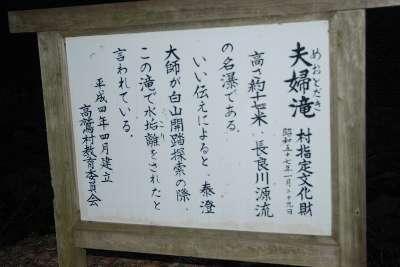 めおとだき
夫婦滝
村指定文化財
昭和五十七年一月二十九日
高さ約十七米、長良川源流
の名瀑である。
いい伝えによると、泰澄
大師が白山開踏探索の際、
この滝で水垢離をされたと
言われている。
平成四年四月建立
高鷲村教育委員会